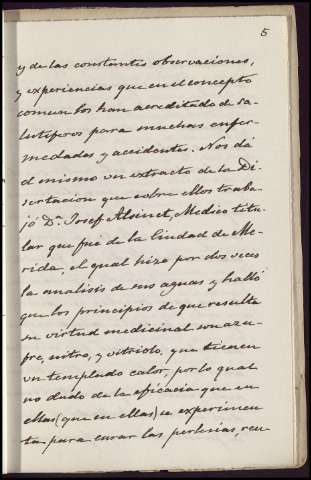 5
y de las constantes observaciones,
y experiencias que en el concepto
comun los han acreditado de sa-
lutiferos para muchas enfer-
medades y accidentes. Nos dá
el mismo un extracto de la Di-
sertacion que sobre ellos traba-
jó Dn. Josef Alsinet, Medico titu-
lar que fué de la Ciudad de Me-
rida, el qual hizo por dos veces
la analisis de sus aguas y halló
que los principios de que resulta
su virtud medicinal son azu-
fre, nitro, y vitriolo, y que tienen
un templado calor, por lo qual
no dudo de la eficacia que en
ellas (que en ellas) se experimen-
ta para curar las perlesias, reu-